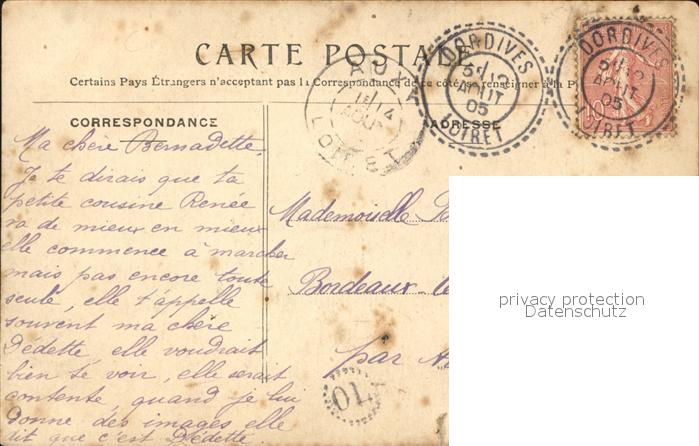 CARTE POSTALE
Certains Pays Étrangers n'acceptant pas la Correspondance de ce côté, se renseigner à la P
CORRESPONDANCE
ADRESSE
DORDIVES
AOUT
05
LOIRET
DORDIVES
AOUT
05
LOIRET
14
AOUT
LOIRET
Ma chère Bernadette,
Je te dirais que ta
petite cousine Renée
va de mieux en mieux
elle commence à marcher
mais pas encore toute
seule, elle t'appelle
souvent ma chère
Dédette, elle voudrait
bien te voir, elle serait
contente, quand je lui
donne des images elle
dit que c'est Dédette.
Mademoiselle
Bordeaux
par
OL
privacy protection
Datenschutz